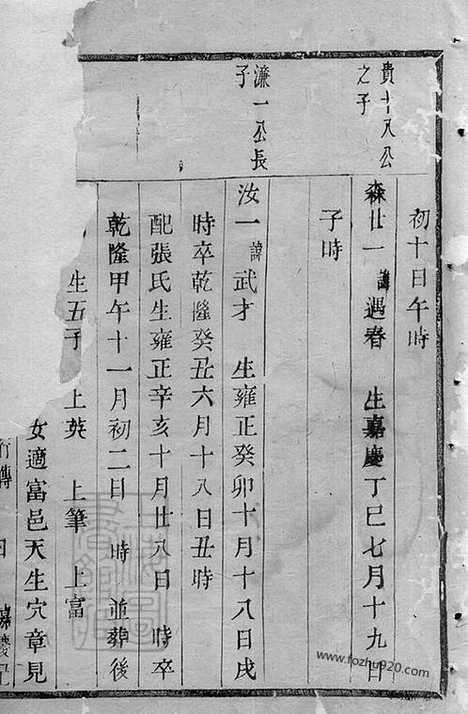 初十日午時
貴十八公
之子
森廿一 諱遇春 生嘉慶丁巳七月十九日
子時
濂一公長
子
汝一 諱武才 生雍正癸卯十月十八日戌
時卒乾隆癸丑六月十八日丑時
配張氏生雍正辛亥十月廿八日 時卒
乾隆甲午十一月初二日 時並葬後
生五子 上英 上筆 上富
女適富邑天生穴章見
行傳
www.fozhu920.com